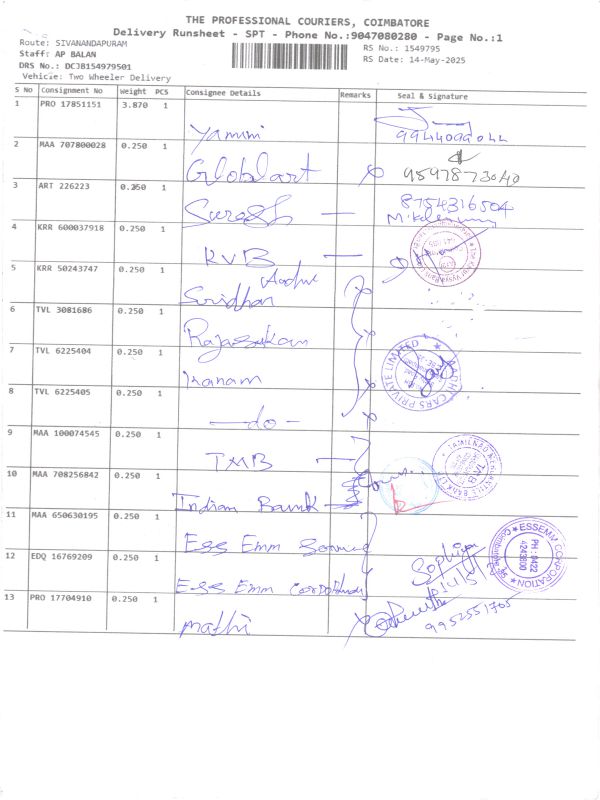 THE PROFESSIONAL COURIERS, COIMBATORE
Delivery Runsheet - SPT - Phone No.:9047080280 - Page No.:1
Route: SIVANANDAPURAM
Staff: AP BALAN
DRS No.: DCJB154979501
Vehicle: Two Wheeler Delivery
RS No.: 1549795
RS Date: 14-May-2025
S No Consignment No Weight PCS Consignee Details Remarks Seal & Signature
1 PRO 17851151 3.870 1 Yamini 9944099044
2 MAA 707800028 0.250 1 Globlart 9597873040
3 ART 226223 0.250 1 Suresh 8754316504
4 KRR 600037918 0.250 1 KVB
5 KRR 50243747 0.250 1 Sridhar
6 TVL 3081686 0.250 1
7 TVL 6225404 0.250 1 AADHI CARS PRIVATE LIMITED
8 TVL 6225405 0.250 1 -do-
9 MAA 100074545 0.250 1 TMB
10 MAA 708256842 0.250 1 Indian Bank
11 MAA 650630195 0.250 1 Ess Emm
12 EDQ 16769209 0.250 1 Ess Emm Corporation
ESSEMM CORPORATION
PH: 0422
4243600
13 PRO 17704910 0.250 1 Mathi 9952551705